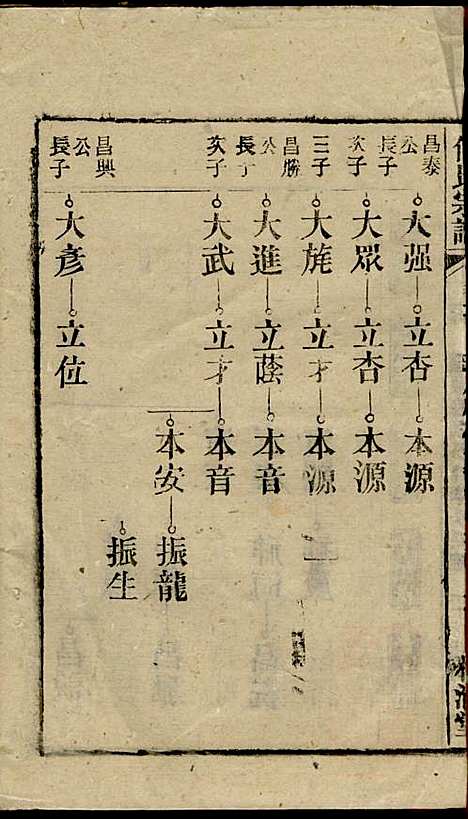 昌泰公長子 大强 立杏 本源
次子 大眾 立杏 本源
三子 大旄 立才 本源
昌勝公長子 大進 立蔭 本音
次子 大武 立才 本音
本安 振龍
振生
昌興公長子 大彥 立位